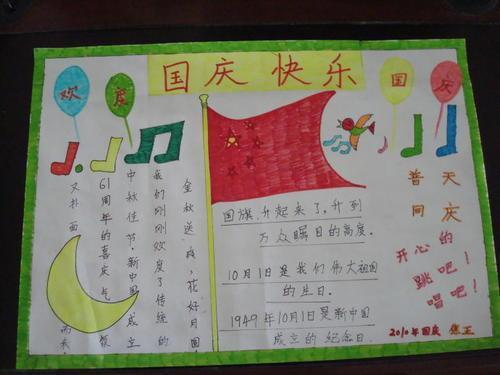 国庆 快乐
欢度国庆
金秋送爽,花好月圆
我们刚刚欢度了传统的
中秋佳节,新中国成立
61周年的喜庆气氛
又扑面而来
国旗升起来了,升到
万众瞩目的高度.
10月1日是我们伟大祖国
的生日.
1949年10月1日是新中国
成立的纪念日.
普天
同庆
开心的
跳吧!
唱吧!
2010年国庆